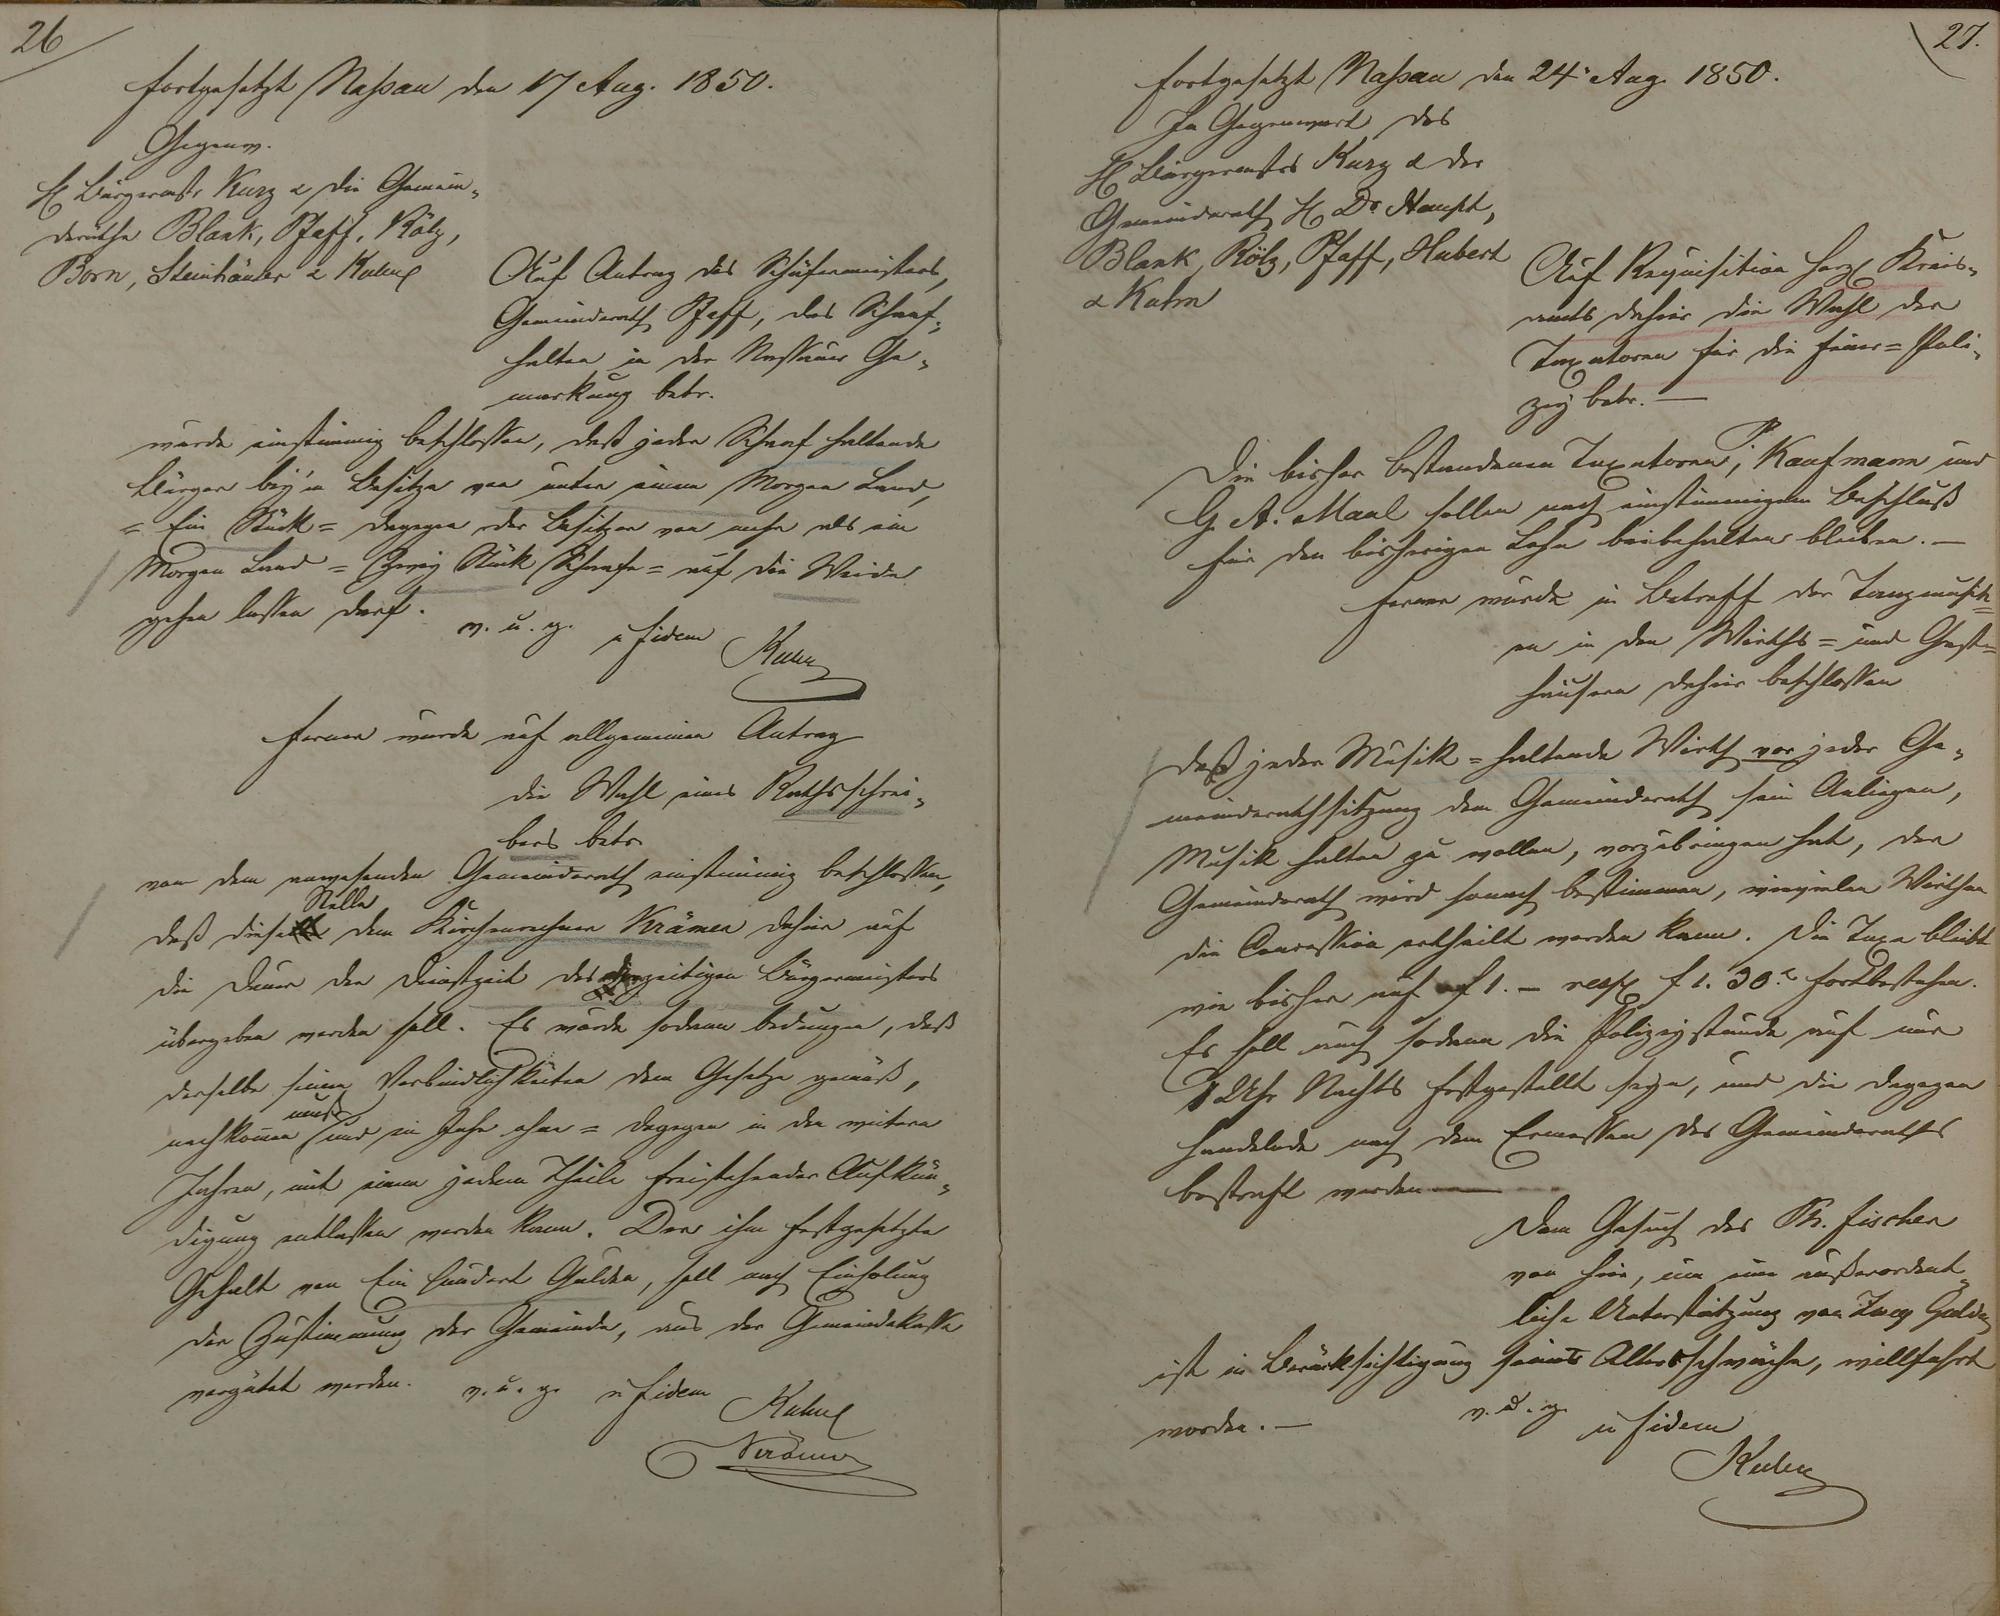 26
fortgesetzt Nassau den 17 Aug. 1850.
Gegenw.
H Bürgermstr Kurz & die Gemein-
deräthe Blank, Pfaff, Rölz,
Born, Steinhäuser & Kuhn
Auf Antrag des Schäfermeisters,
Gemeinderath Pfaff, das Schaaf-
halten in der Nassauer Ge-
markung betr.
wurde einstimmig beschlossen, daß jeder Schaaf haltende
Bürger bey'm Besitze von unter einem Morgen Land,
= Ein Stück = dagegen der Besitzer von mehr als ein
Morgen Land = Zwey Stück Schaafe = auf die Weide
gehen lassen darf.
v. u. g. in fidem
Kuhn
Ferner wurde auf allgemeinen Antrag
die Wahl eines Rathsschrei-
bers betr.
von dem anwesenden Gemeinderath einstimmig beschlossen,
daß diese Stelle dem Kirchenrechner Krämer dahier auf
die Dauer der Dienstzeit des derzeitigen Bürgermeisters
übergeben werden soll. Es wurde sodann bedungen, daß
derselbe seinen Verbindlichkeiten dem Gesetze gemäß,
nachkommen muß und im Jahr ohne = dagegen in den weitern
Jahren, mit einem jedem Theile freistehender Aufkün-
digung entlassen werden kann. Der ihm festgesetzte
Gehalt von Ein hundert Gulden, soll nach Einholung
der Zustimmung der Gemeinde, aus der Gemeindekasse
vergütet werden. v. u. g. in fidem
Kuhn
Krämer
27.
fortgesetzt Nassau den 24. Aug. 1850.
In Gegenwart des
H Bürgermstrs Kurz & der
Gemeinderath H Dr. Haupt,
Blank, Rölz, Pfaff, Hubert
& Kuhn
Auf Requisition Herz Kreis-
amts dahier die Wahl der
Taxatoren für die Feuer=Poli-
zey betr. —
Die bisher bestandenen Taxatoren, P. Kaufmann und
G. A. Maul sollen nach einstimmigem Beschluß
für den bisherigen Lohn beibehalten bleiben. —
Ferner wurde in Betreff der Tanzmusik-
en in den Wirths= und Gast-
häusern dahier beschlossen
daß jeder Musik=haltende Wirth vor jeder Ge-
meinderathssitzung dem Gemeinderath sein Anliegen,
Musik halten zu wollen, vorzubringen hat, der
Gemeinderath wird sonach bestimmen, wievielen Wirthen
die Concession ertheilt werden kann. Die Taxe bleibt
wie bisher auf f 1. — resp f 1. 30 x fortbestehen.
Es soll auch sodann die Polizeystunde auf nur
Uhr Nachts festgestellt seyn, und die dagegen
handelnde nach dem Ermessen des Gemeinderaths
bestraft werden —
Dem Gesuch des Ph. Fischer
von hier, um eine außerordent-
liche Unterstützung von Zwey Gulden
ist in Berücksichtigung seiner Altersschwäche, willfahrt
worden. —
v. u. g.
in fidem
Kuhn